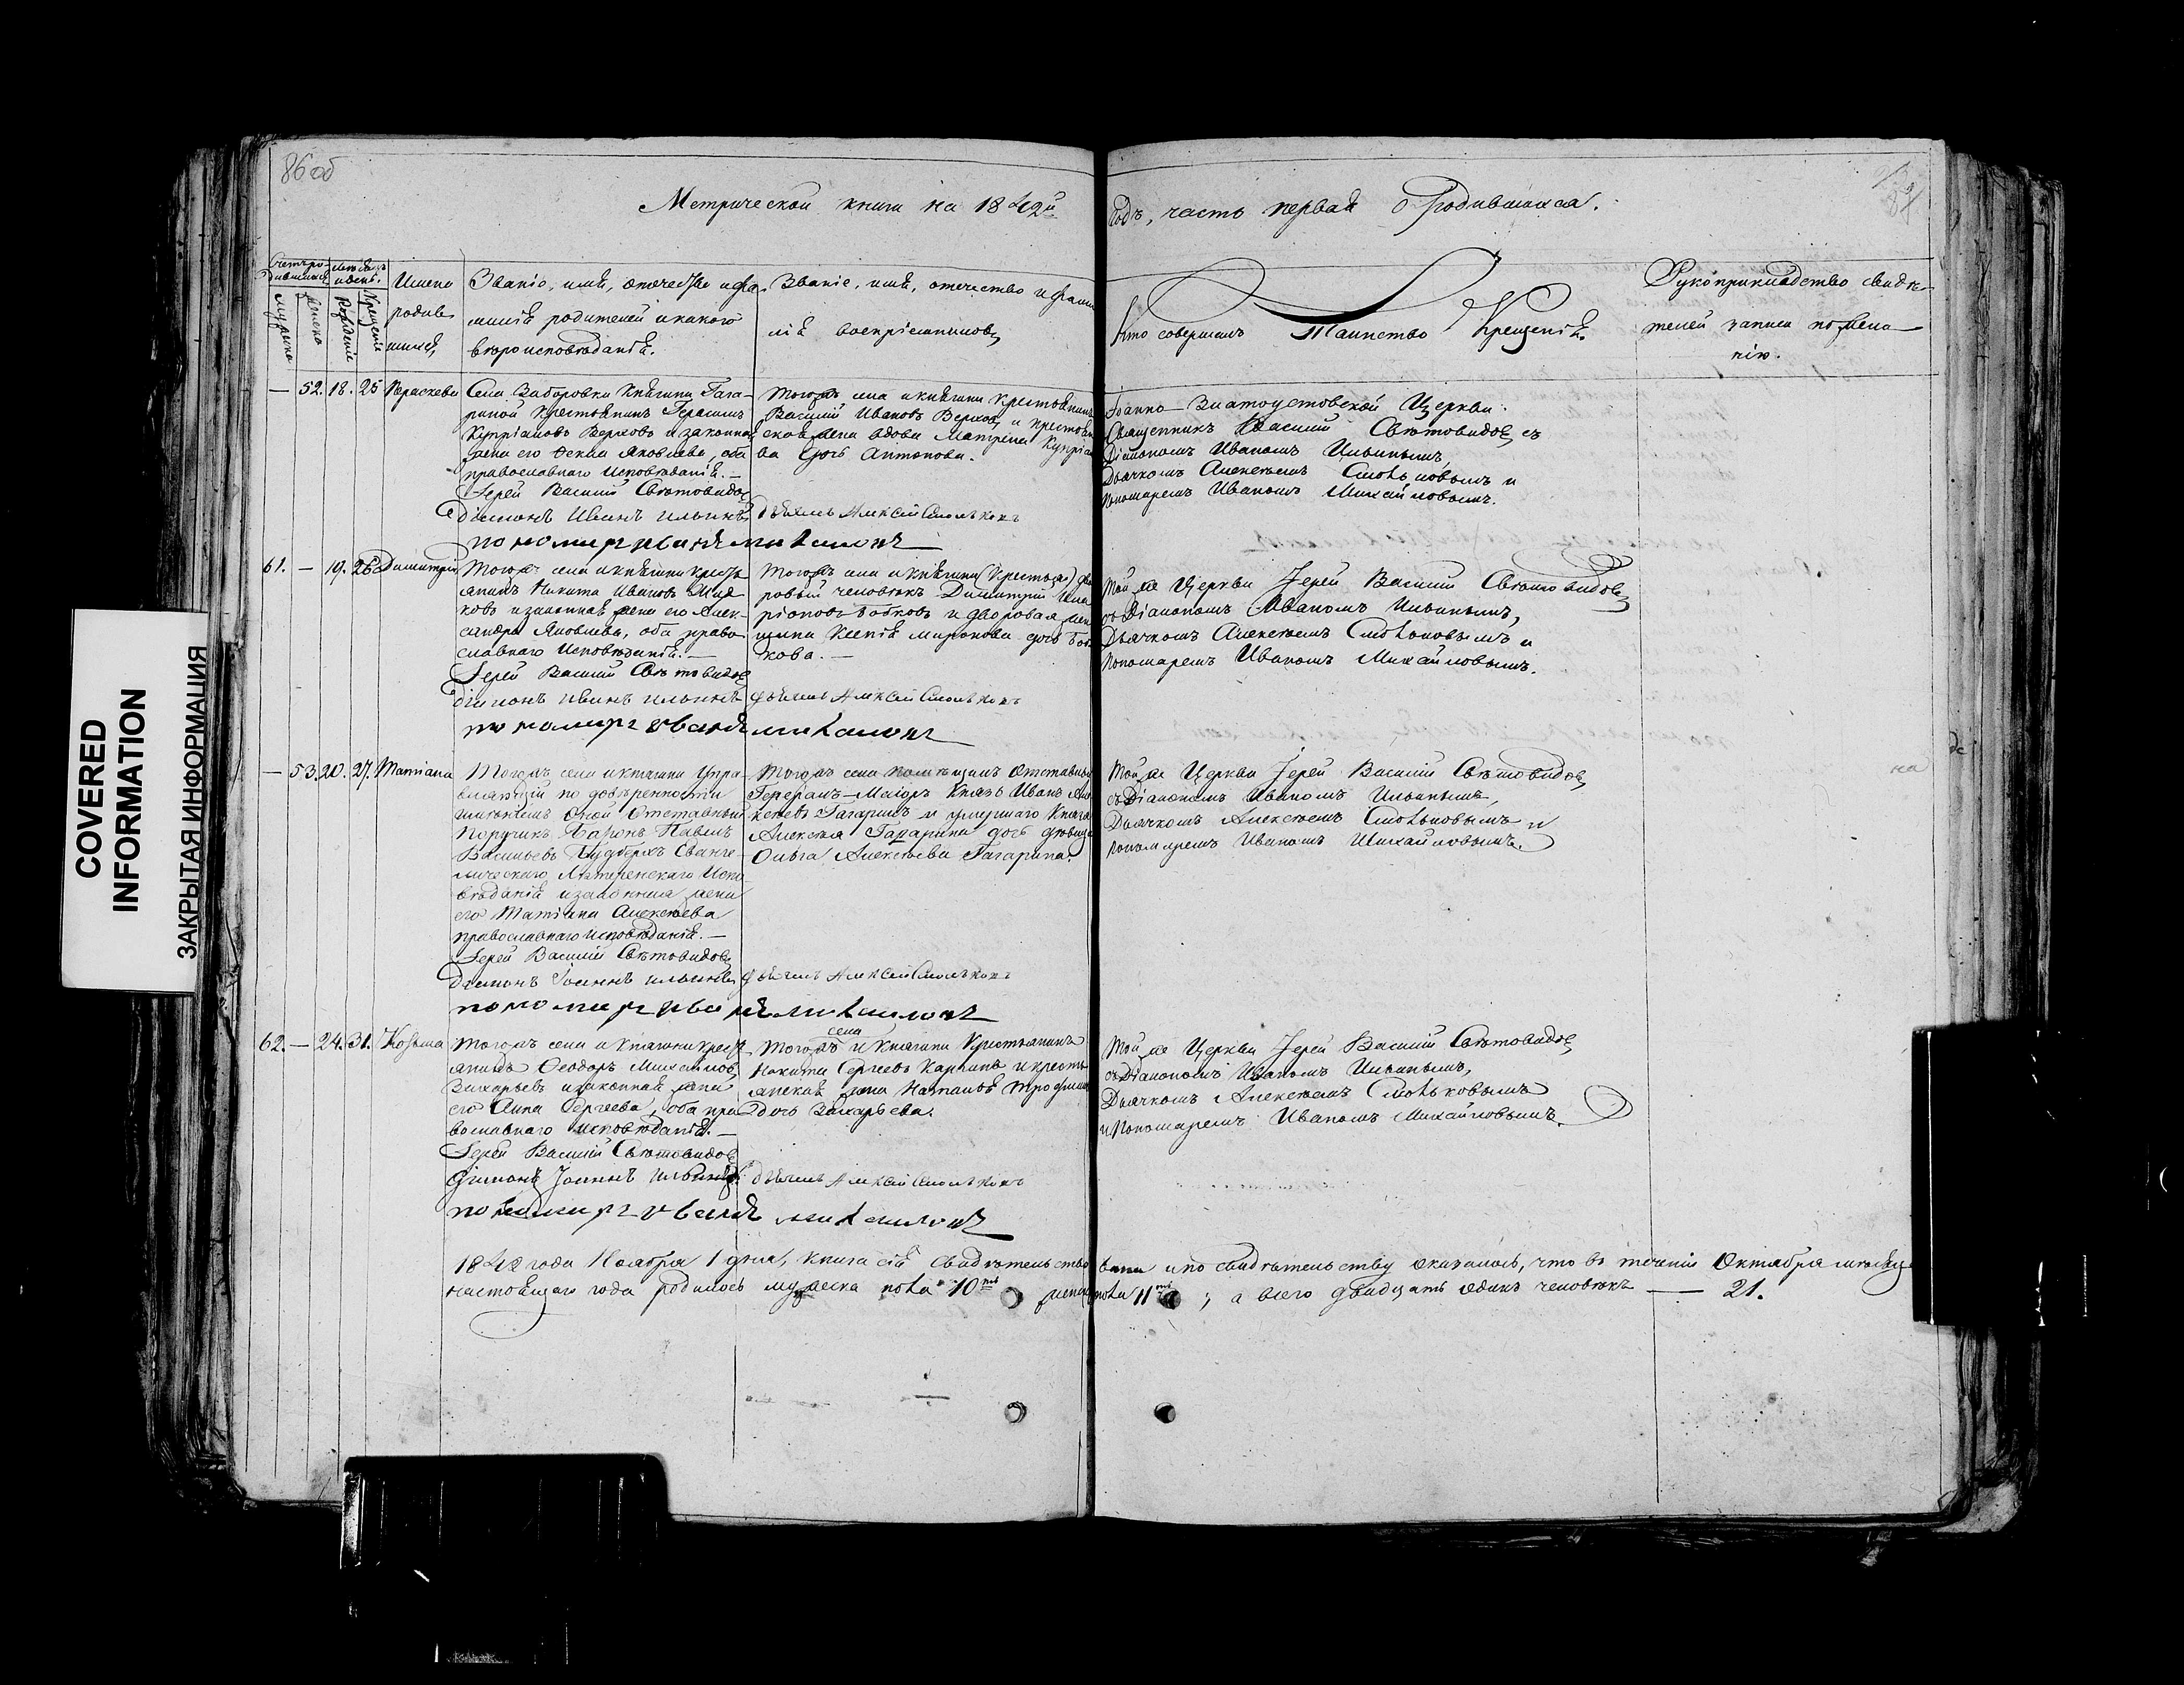 86 об
87
Метрической книги на 1842й
годъ, часть первая о родившихся.
COVERED
INFORMATION
ЗАКРЫТАЯ ИНФОРМАЦИЯ
Счетъ ро-
дившихся
Мѣсяцъ
и день.
мужеска
женска
Рожденія
Крещенія
Имена
родив
шихся,
Званіе, имя, отечество и фа-
милія родителей и какого
вѣроисповѣданія.
Званіе, имя, отечество и фами
лія воспріемниковъ,
Кто совершалъ Таинство Крещенія.
Рукоприкладство свидѣ
телей записи по жела
нію.
— 52. 18. 25 Параскева
Села Княгини Гага-
риной крестьянинъ Герасимъ
Купріановъ Верховъ и законная
жена его Яковлева, оба
православнаго исповѣданія.—
Іерей Василій Свѣтовидовъ
Діаконъ Иванъ Ильинъ
Тогожъ села и княгини крестьянинъ
Василій Ивановъ Верховъ, и крестьян
ская жена вдова Матрена Купріано
ва дочь Антонова.
Дьячекъ Алексѣй Смольковъ
пономарь иванъ михаиловъ
Іоанно-Златоустовской Церкви
Священникъ Василій Свѣтовидовъ, съ
Діакономъ Иваномъ Ильинымъ,
Дьячкомъ Алексѣемъ Смольковымъ и
Пономаремъ Иваномъ Михайловымъ.
61. — 19. 26 Димитрій
Тогожъ села и княгини кресть
янинъ Никита Ивановъ
и законная жена его Алек-
сандра Яковлева, оба право
славнаго исповѣданія.—
Іерей Василій Свѣтовидовъ
Діаконъ Иванъ Ильинъ
Тогожъ села и княгини (крестьян) дво
ровый человѣкъ Димитрій
Бобковъ и дворовая жен
щина Ксенія Миронова дочь Боб
кова.—
Дьячекъ Алексѣй Смольковъ
пономарь иванъ михаиловъ
Той же Церкви Іерей Василій Свѣтовидовъ
съ Діакономъ Иваномъ Ильинымъ,
Дьячкомъ Алексѣемъ Смольковымъ и
Пономаремъ Иваномъ Михайловымъ.
— 53. 20. 27. Татіана
Тогожъ села и княгини Упра-
вляющій по довѣренности
имѣніемъ оной Отставный
Поручикъ Баронъ Павелъ
Васильевъ Будбергъ Еванге-
лическаго Лютеренскаго Испо
вѣданія и законная жена
его Татіана Алексѣева
православнаго исповѣданія.—
Іерей Василій Свѣтовидовъ
Діаконъ Іоаннъ Ильинъ
Тогожъ села помѣщикъ Отставный
Генералъ-Маіоръ Князь Иванъ Але
ксѣевъ Гагаринъ и умершаго Князя
Алексѣя Гагарина дочь дѣвица
Ольга Алексѣева Гагарина.
Дьячекъ Алексѣй Смольковъ
пономарь иванъ михаиловъ
Той же Церкви Іерей Василій Свѣтовидовъ,
съ Діакономъ Иваномъ Ильинымъ,
Дьячкомъ Алексѣемъ Смольковымъ и
Пономаремъ Иваномъ Михайловымъ.
62. — 24. 31. Косьма
Тогожъ села и княгини крест
янинъ Ѳеодоръ Михайловъ
Захарьевъ и законная жена
его Анна Сергеева, оба пра
вославнаго исповѣданія.—
Іерей Василій Свѣтовидовъ
Діаконъ Іоаннъ Ильинъ
села
Тогожъ и Княгини Крестьянинъ
Никита Сергеевъ и кресть
янская жена Наталія Трофима
дочь Захарьева.
Дьячекъ Алексѣй Смольковъ
пономарь иванъ михаиловъ
Той же Церкви Іерей Василій Свѣтовидовъ,
съ Діакономъ Иваномъ Ильинымъ,
Дьячкомъ Алексѣемъ Смольковымъ
и Пономаремъ Иваномъ Михайловымъ.
1842 года Ноября 1 дня, книга сія свидѣтельствована и по свидѣтельству оказалось, что въ теченіи Октября мѣсяца
настоящаго года родилось мужеска пола 10ть женска пола 11ть; а всего двадцать одинъ человѣкъ — 21.